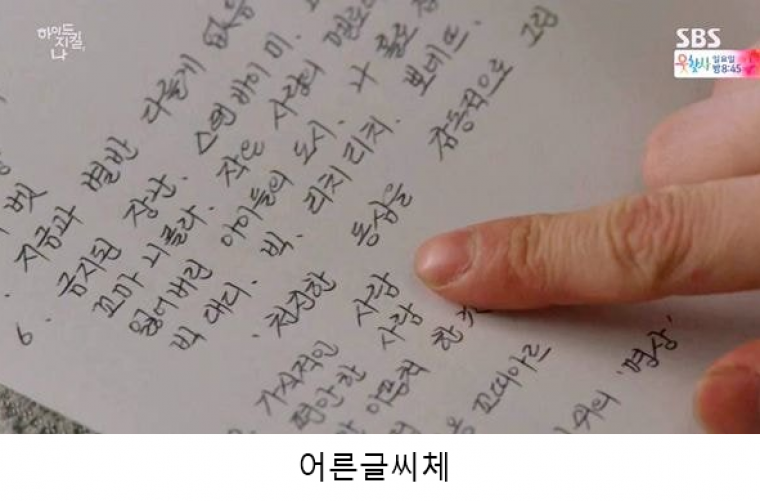 하이드
지킬,
나
SBS
웃찾사 일요일
밤8:45
벗
지금과 별반 다를게 없음
6. 금지된 장난. 스탠 바이 미.
꼬마 니콜라. 작은 사랑의 멜로디
잃어버린 아이들의 도시. 나 홀로
빅 대디. 빅. 리치 리치. 뽀네뜨.
천진한 동심을 감동적으로 그림
가식적인 사람
편안한 사람
이중적 한
꼬띠아르
위의 '명상'
어른글씨체